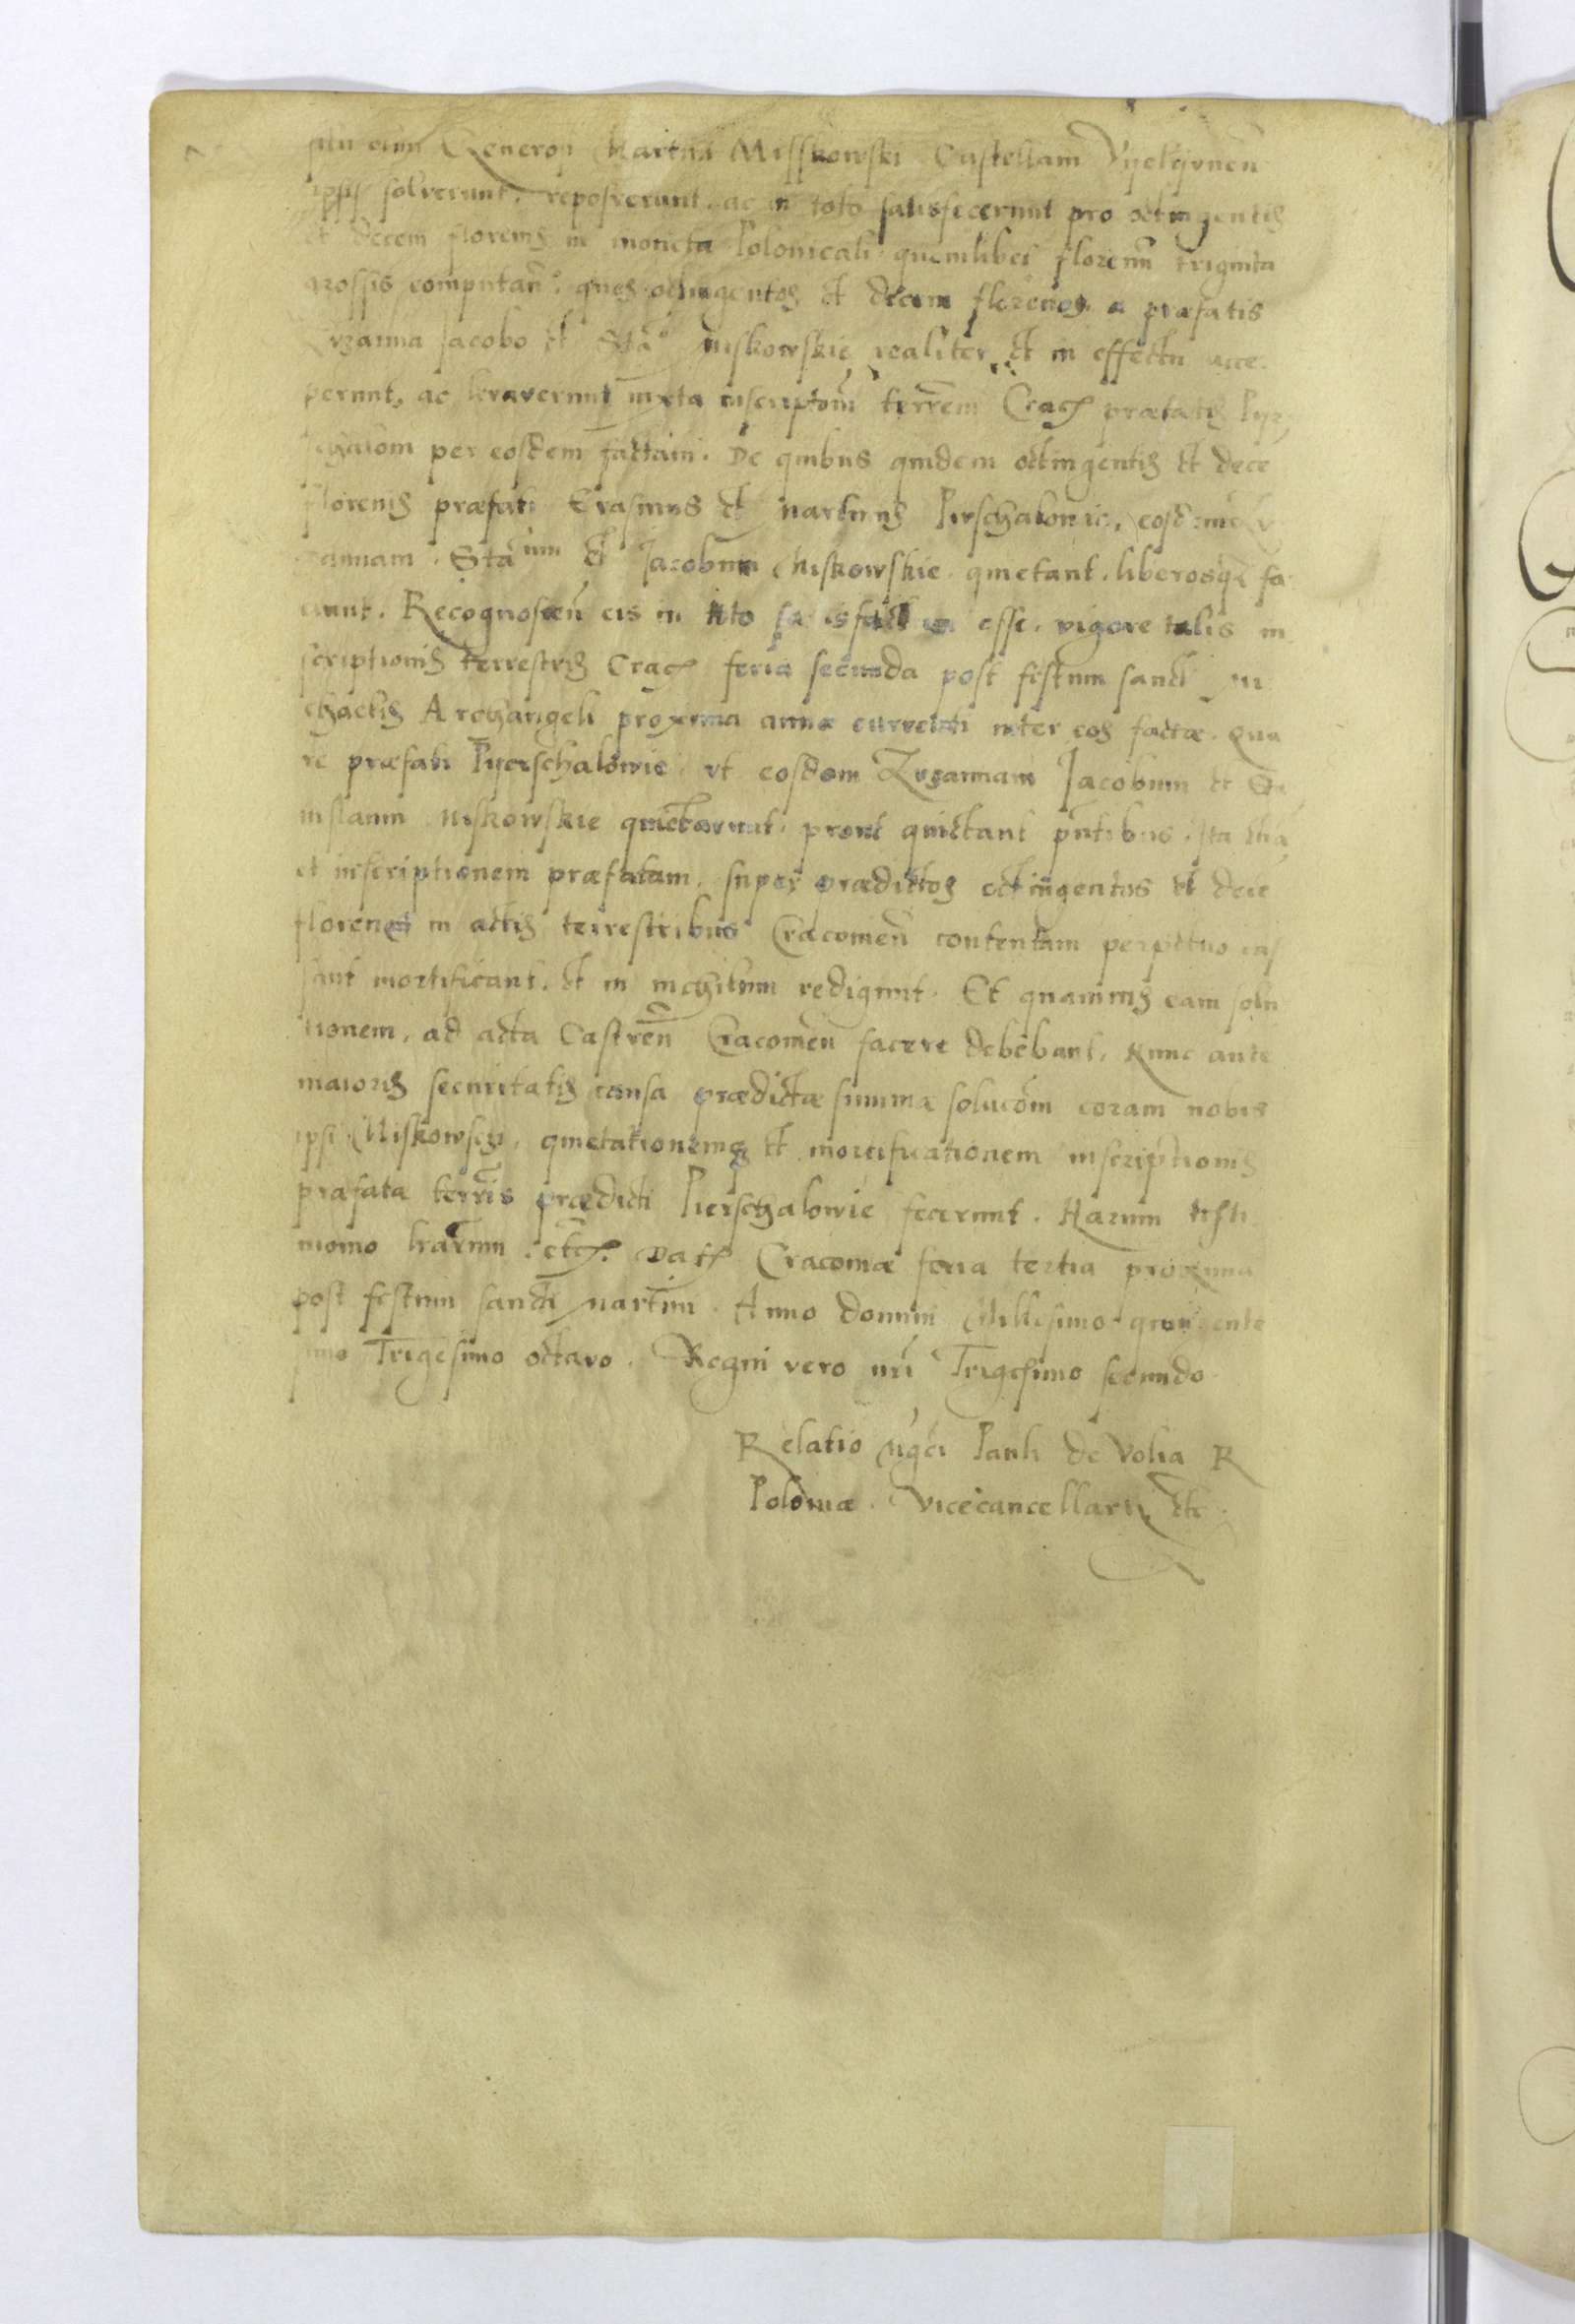 olim Generosi Martini Misskowski Castellani Vyelyvnen
ipsis solverunt, reposverunt, ac in toto satisfecerunt pro octingentis
et decem florenis in moneta Polonicali quemlibet florenu triginta
grossis computan. quos octingentos et decem florenos a præfatis
Zvzanna Jacobo et Sta° Miskowskie realiter et in effectu acce
perunt, ac levaverunt iuxta inscriptom terrem Crac præfatis
schalom per eosdem factam. De quibus quidem octingentis et dece
florenis præfati Erasmus et Martinus Pirschalowie, eosdem Zv
zannam. Sta um et Jacobum Miskowskie quietant. liberosq fa
ciunt. Recognoscen eis in toto satisfactum esse. vigore talis in
scriptionis terrestris Crac feria secunda post festum sancti Mi
chaelis Archangeli proxima anno currenti inter eos factæ. Qua
re præfati Pyerschalowie vt eosdem Zvzannam Jacobum et Sta
nislaum Miskowskie quietarunt. prout quietant pntibus. Ita etia
et inscriptionem præfatam, super prædictos octingentos et dece
florenos in actis terrestribus Cracouien contentam perpetuo cas
sant mortificant, et in nichilum redigunt. Et quamuis eam solu
tionem, ad acta Castren Cracouien facere debebant, Nunc aute
maioris securitatis causa prædictæ summæ solucom coram nobis
ipsi Miskowsci, quietationemq et mortificationem inscriptionis
præfatæ terris prædicti Pierschalowie fecerunt. Harum testi
monio lrarum. etc. Dat Cracouiæ feria tertia proxima
post festum sancti Martini. Anno domini Millesimo quingente
simo Trigesimo octavo. Regni vero nri Trigesimo secundo
Relatio Mgci Pauli de Volia R
Poloniæ. Vicecancellarii etc